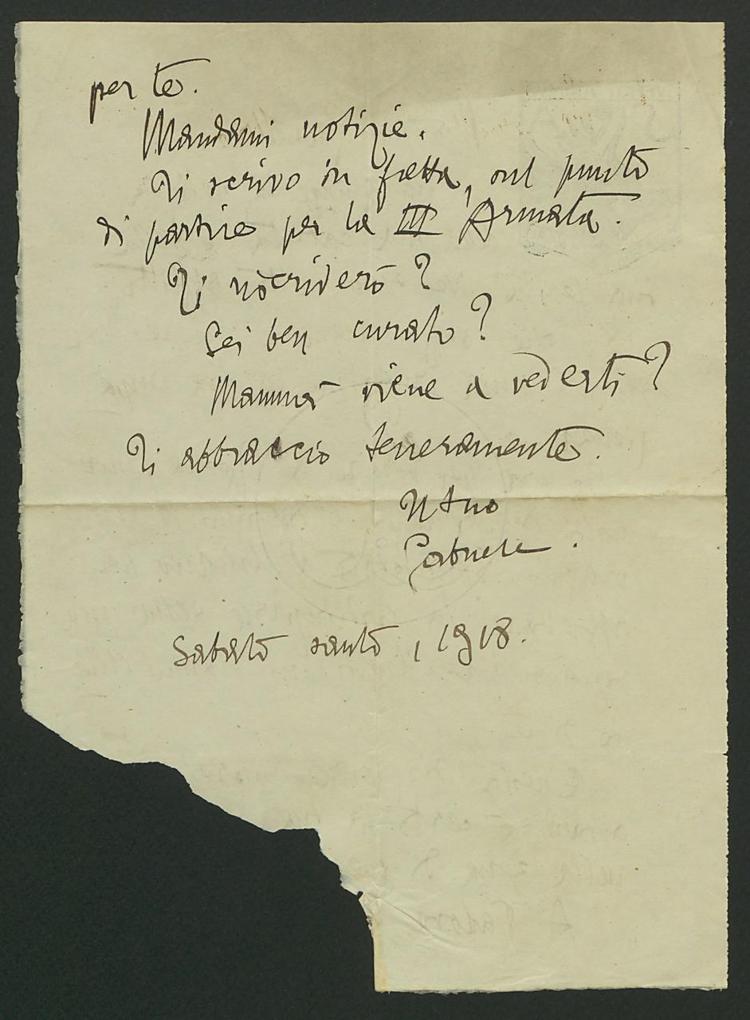 per te.
Mandami notizie.
Ti scrivo in fretta, sul punto
di partire per la III Armata.
Ti
Sei ben curato?
Mammà viene a vederti?
Ti abbraccio teneramente.
Il tuo
Gabriele.
Sabato santo, 1918.